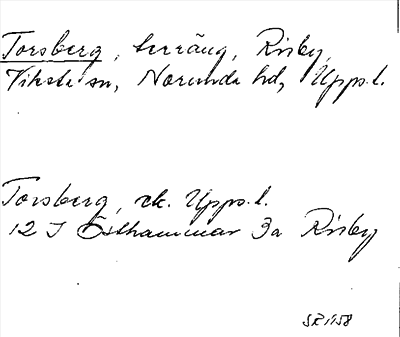 Torsberg, terräng, Risby,
Viksta sn, Norunda hd, Upps. l.
Torsberg, ek. Upps. l.
12 I Östhammar 3a Risby
SR 1958